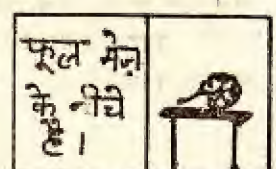 फूल मेज़
के नीचे
है।